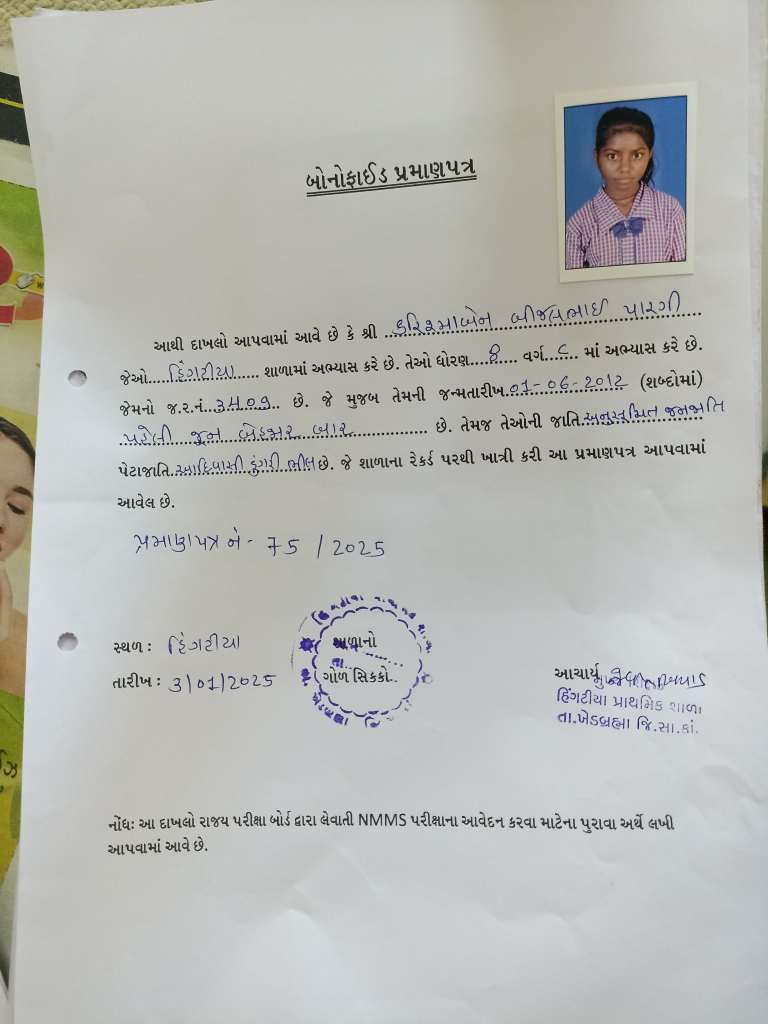 બોનોફાઈડ પ્રમાણપત્ર
આથી દાખલો આપવામાં આવે છે કે શ્રી કરિશ્માબેન બીજલભાઈ પારગી
જેઓ હિંગટીયા શાળામાં અભ્યાસ કરે છે. તેઓ ધોરણ 8 વર્ગ માં અભ્યાસ કરે છે.
જેમનો જ.ર.નં. 3409 છે. જે મુજબ તેમની જન્મતારીખ 01-06-2012 (શબ્દોમાં)
પહેલી જૂન બેહજાર બાર છે. તેમજ તેઓની જાતિ અનુસૂચિત જનજાતિ
પેટાજાતિ આદિવાસી ડુંગરી ભીલ છે. જે શાળાના રેકર્ડ પરથી ખાત્રી કરી આ પ્રમાણપત્ર આપવામાં
આવેલ છે.
પ્રમાણપત્ર નં - 75 / 2025
સ્થળ : હિંગટીયા
તારીખ : 3/01/2025
શાળાનો
ગોળ સિક્કો
આચાર્ય
હિંગટીયા પ્રાથમિક શાળા
તા.ખેડબ્રહ્મા જિ.સા.કાં.
નોંધઃ આ દાખલો રાજય પરીક્ષા બોર્ડ દ્વારા લેવાતી NMMS પરીક્ષાના આવેદન કરવા માટેના પુરાવા અર્થે લખી
આપવામાં આવે છે.